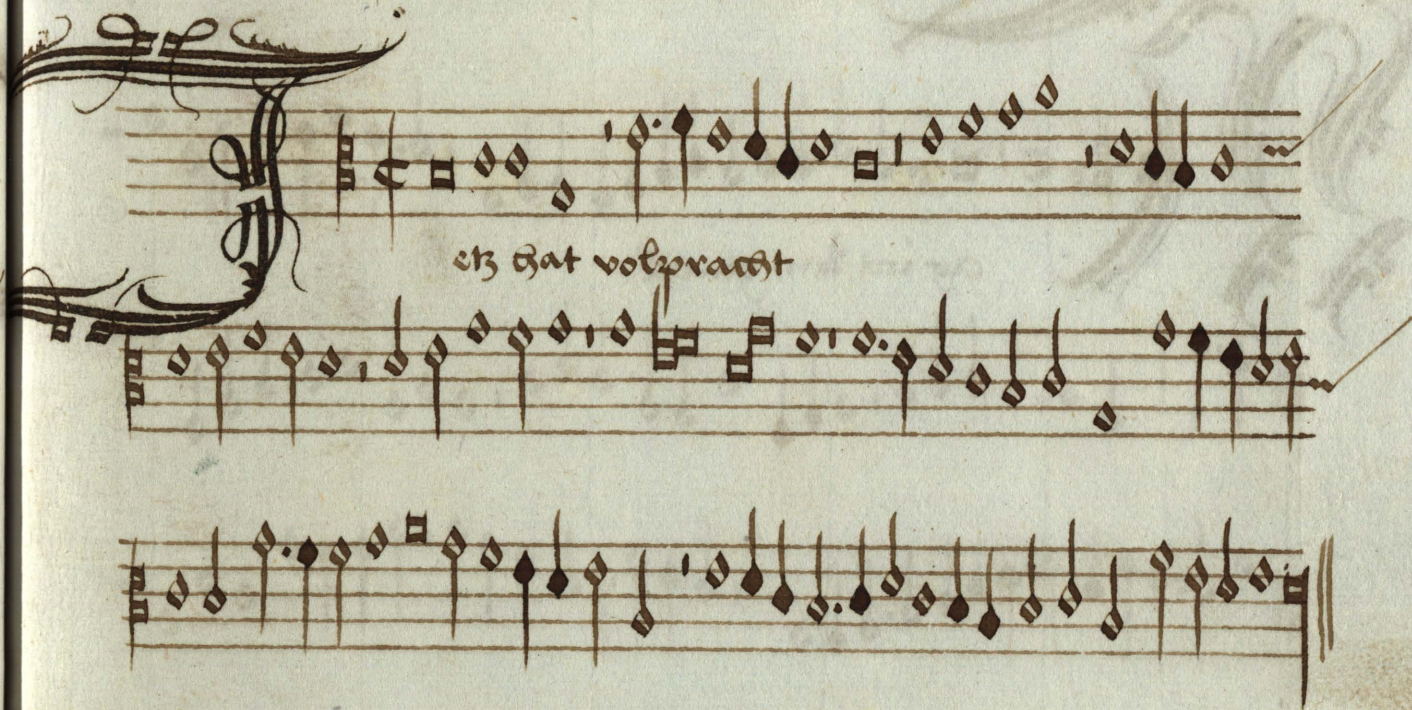 Jetz hat volpracht